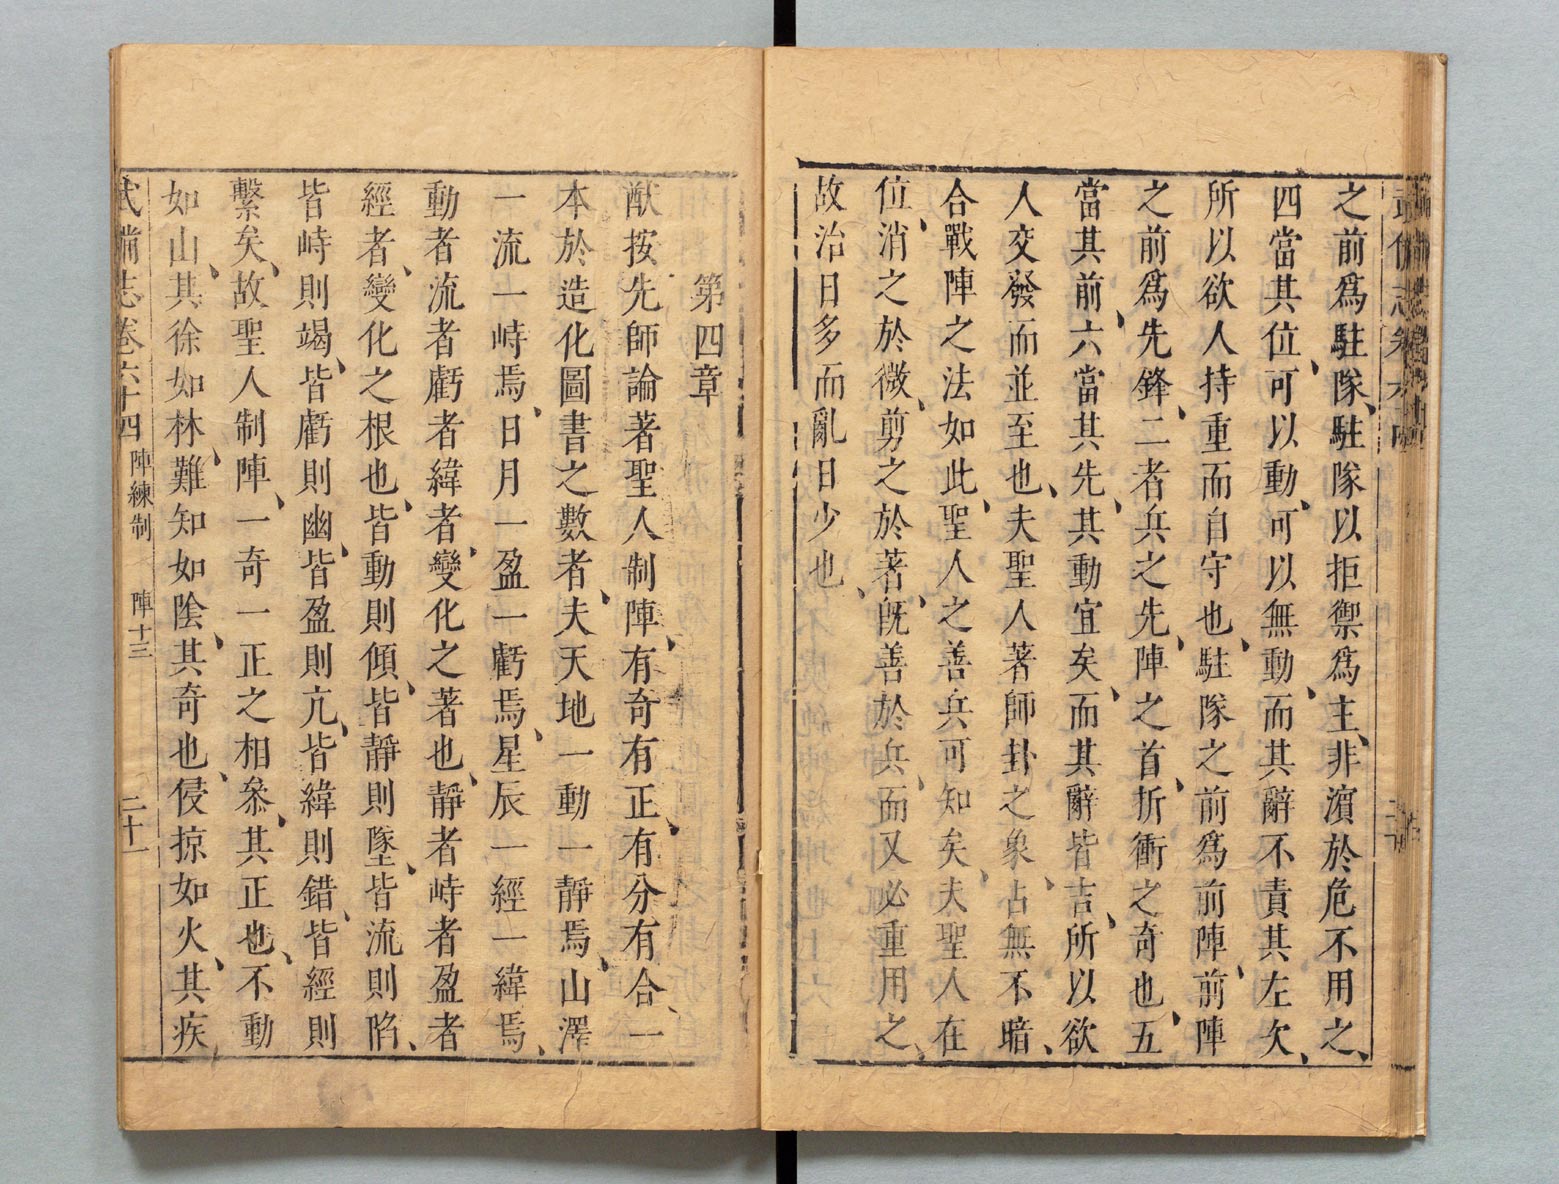 之前爲駐隊駐隊以拒禦爲主非濵於危不用之
四當其位可以動可以無動而其辭不責其左次
所以欲人持重而自守也駐隊之前爲前陣前陣
之前爲先鋒二者兵之先陣之首折衝之奇也五
當其前六當其先其動宜矣而其辭皆吉所以欲
人交發而並至也夫聖人著師卦之象占無不暗
合戰陣之法如此聖人之善兵可知矣夫聖人在
位消之於微剪之於著旣善於兵而又必重用之
故治日多而亂日少也
第四章
猷按先師論著聖人制陣有奇有正有分有合一
本於造化圖書之數者夫天地一動一靜焉山澤
一流一峙焉日月一盈一虧焉星辰一經一緯焉
動者流者虧者緯者變化之著也靜者峙者盈者
經者變化之根也皆動則傾皆靜則墜皆流則陷
皆峙則竭皆虧則幽皆盈則亢皆緯則錯皆經則
繫矣故聖人制陣一奇一正之相叅其正也不動
如山其徐如林難知如陰其奇也侵掠如火其疾
武備志卷六十四 陣練制 陣十三 二十一